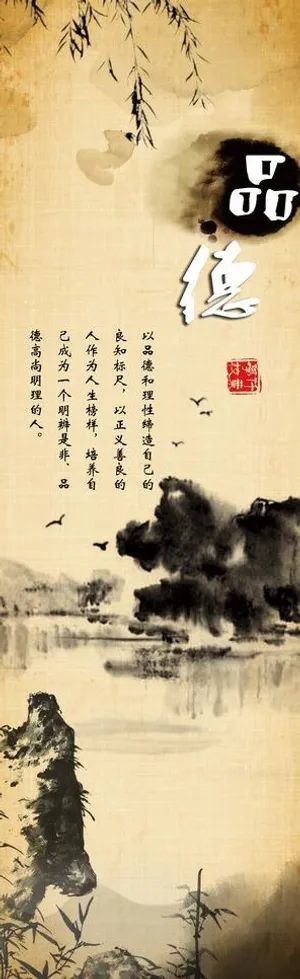 品德
以品德和理性缔造自己的
良知标尺，以正义善良的
人作为人生榜样，培养自
己成为一个明辨是非、品
德高尚明理的人。